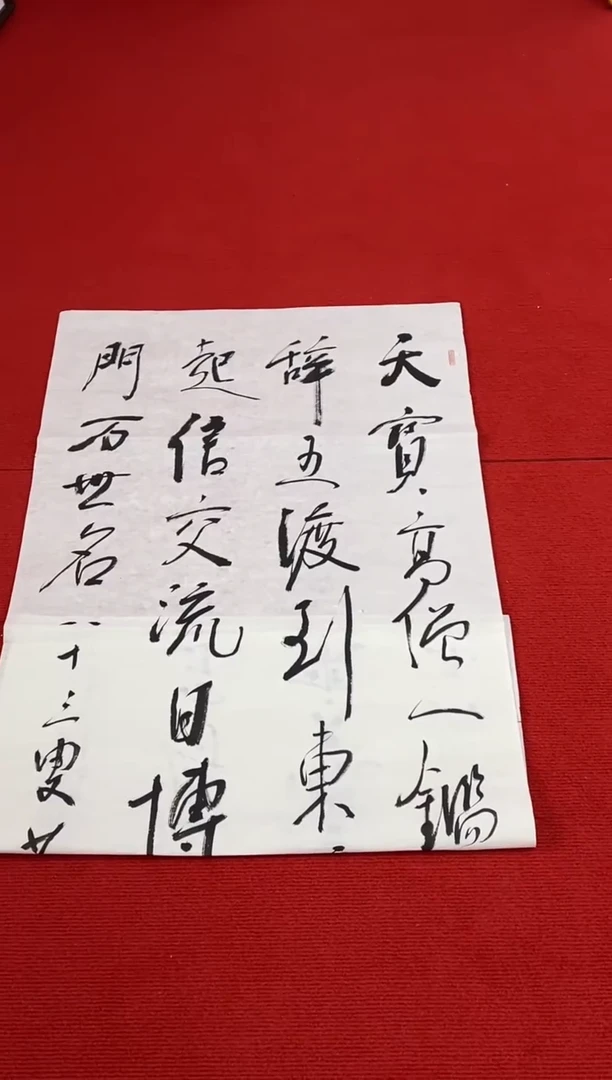 天寶高僧一鑑
辞五渡到東
起信交流日博
門万世名八十三叟